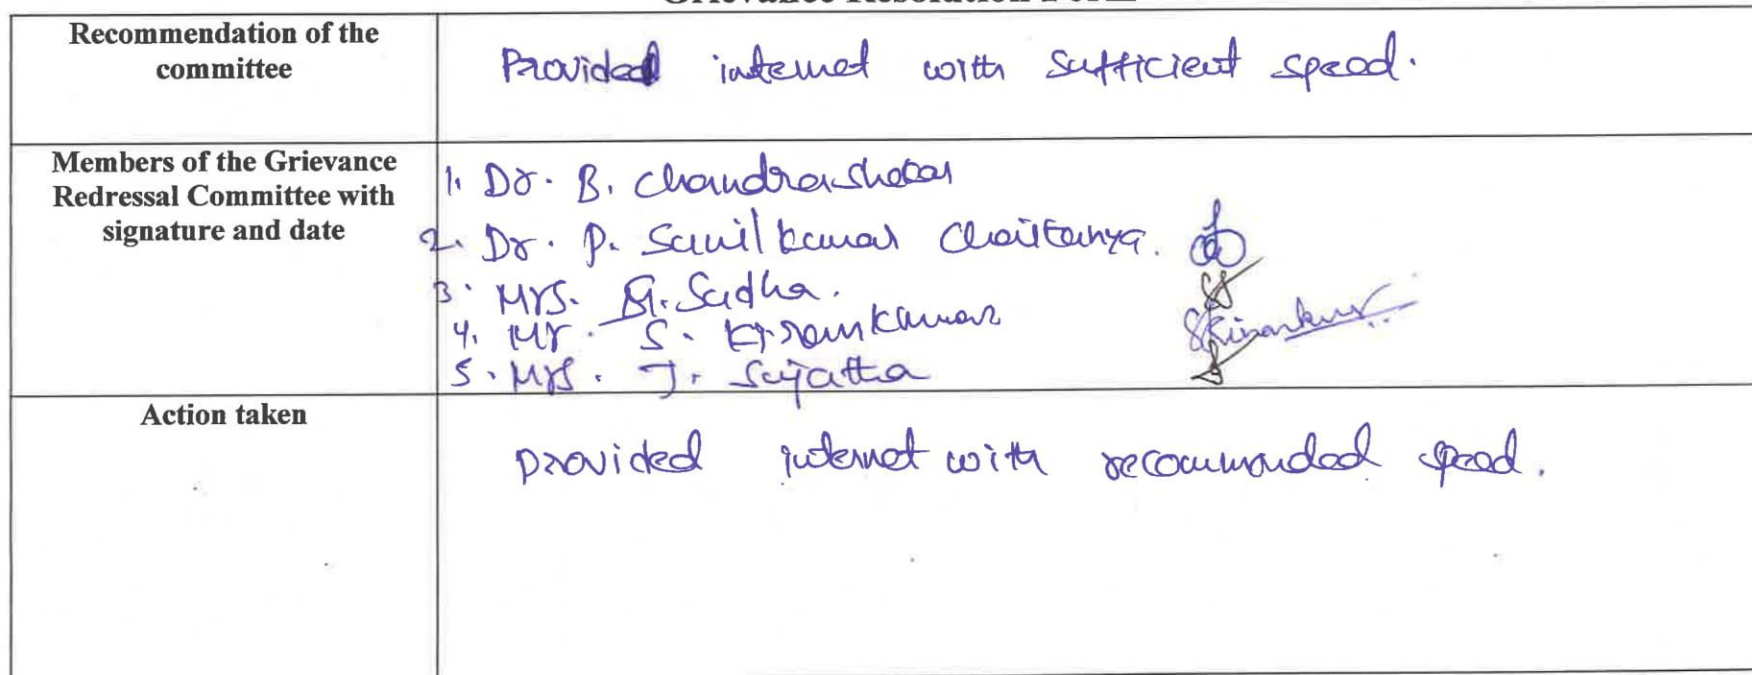 Grievance Resolution Form
Recommendation of the
committee
Provided internet with sufficient speed.
Members of the Grievance
Redressal Committee with
signature and date
1. Dr. B. Chandrashekar
2. Dr. P. Sunil kumar Chaitanya.
3. Mrs. G. Sudha.
4. Mr. S. Kirankumar
SKirankumar
5. Mrs. J. Sujatha
Action taken
provided internet with recommended speed.